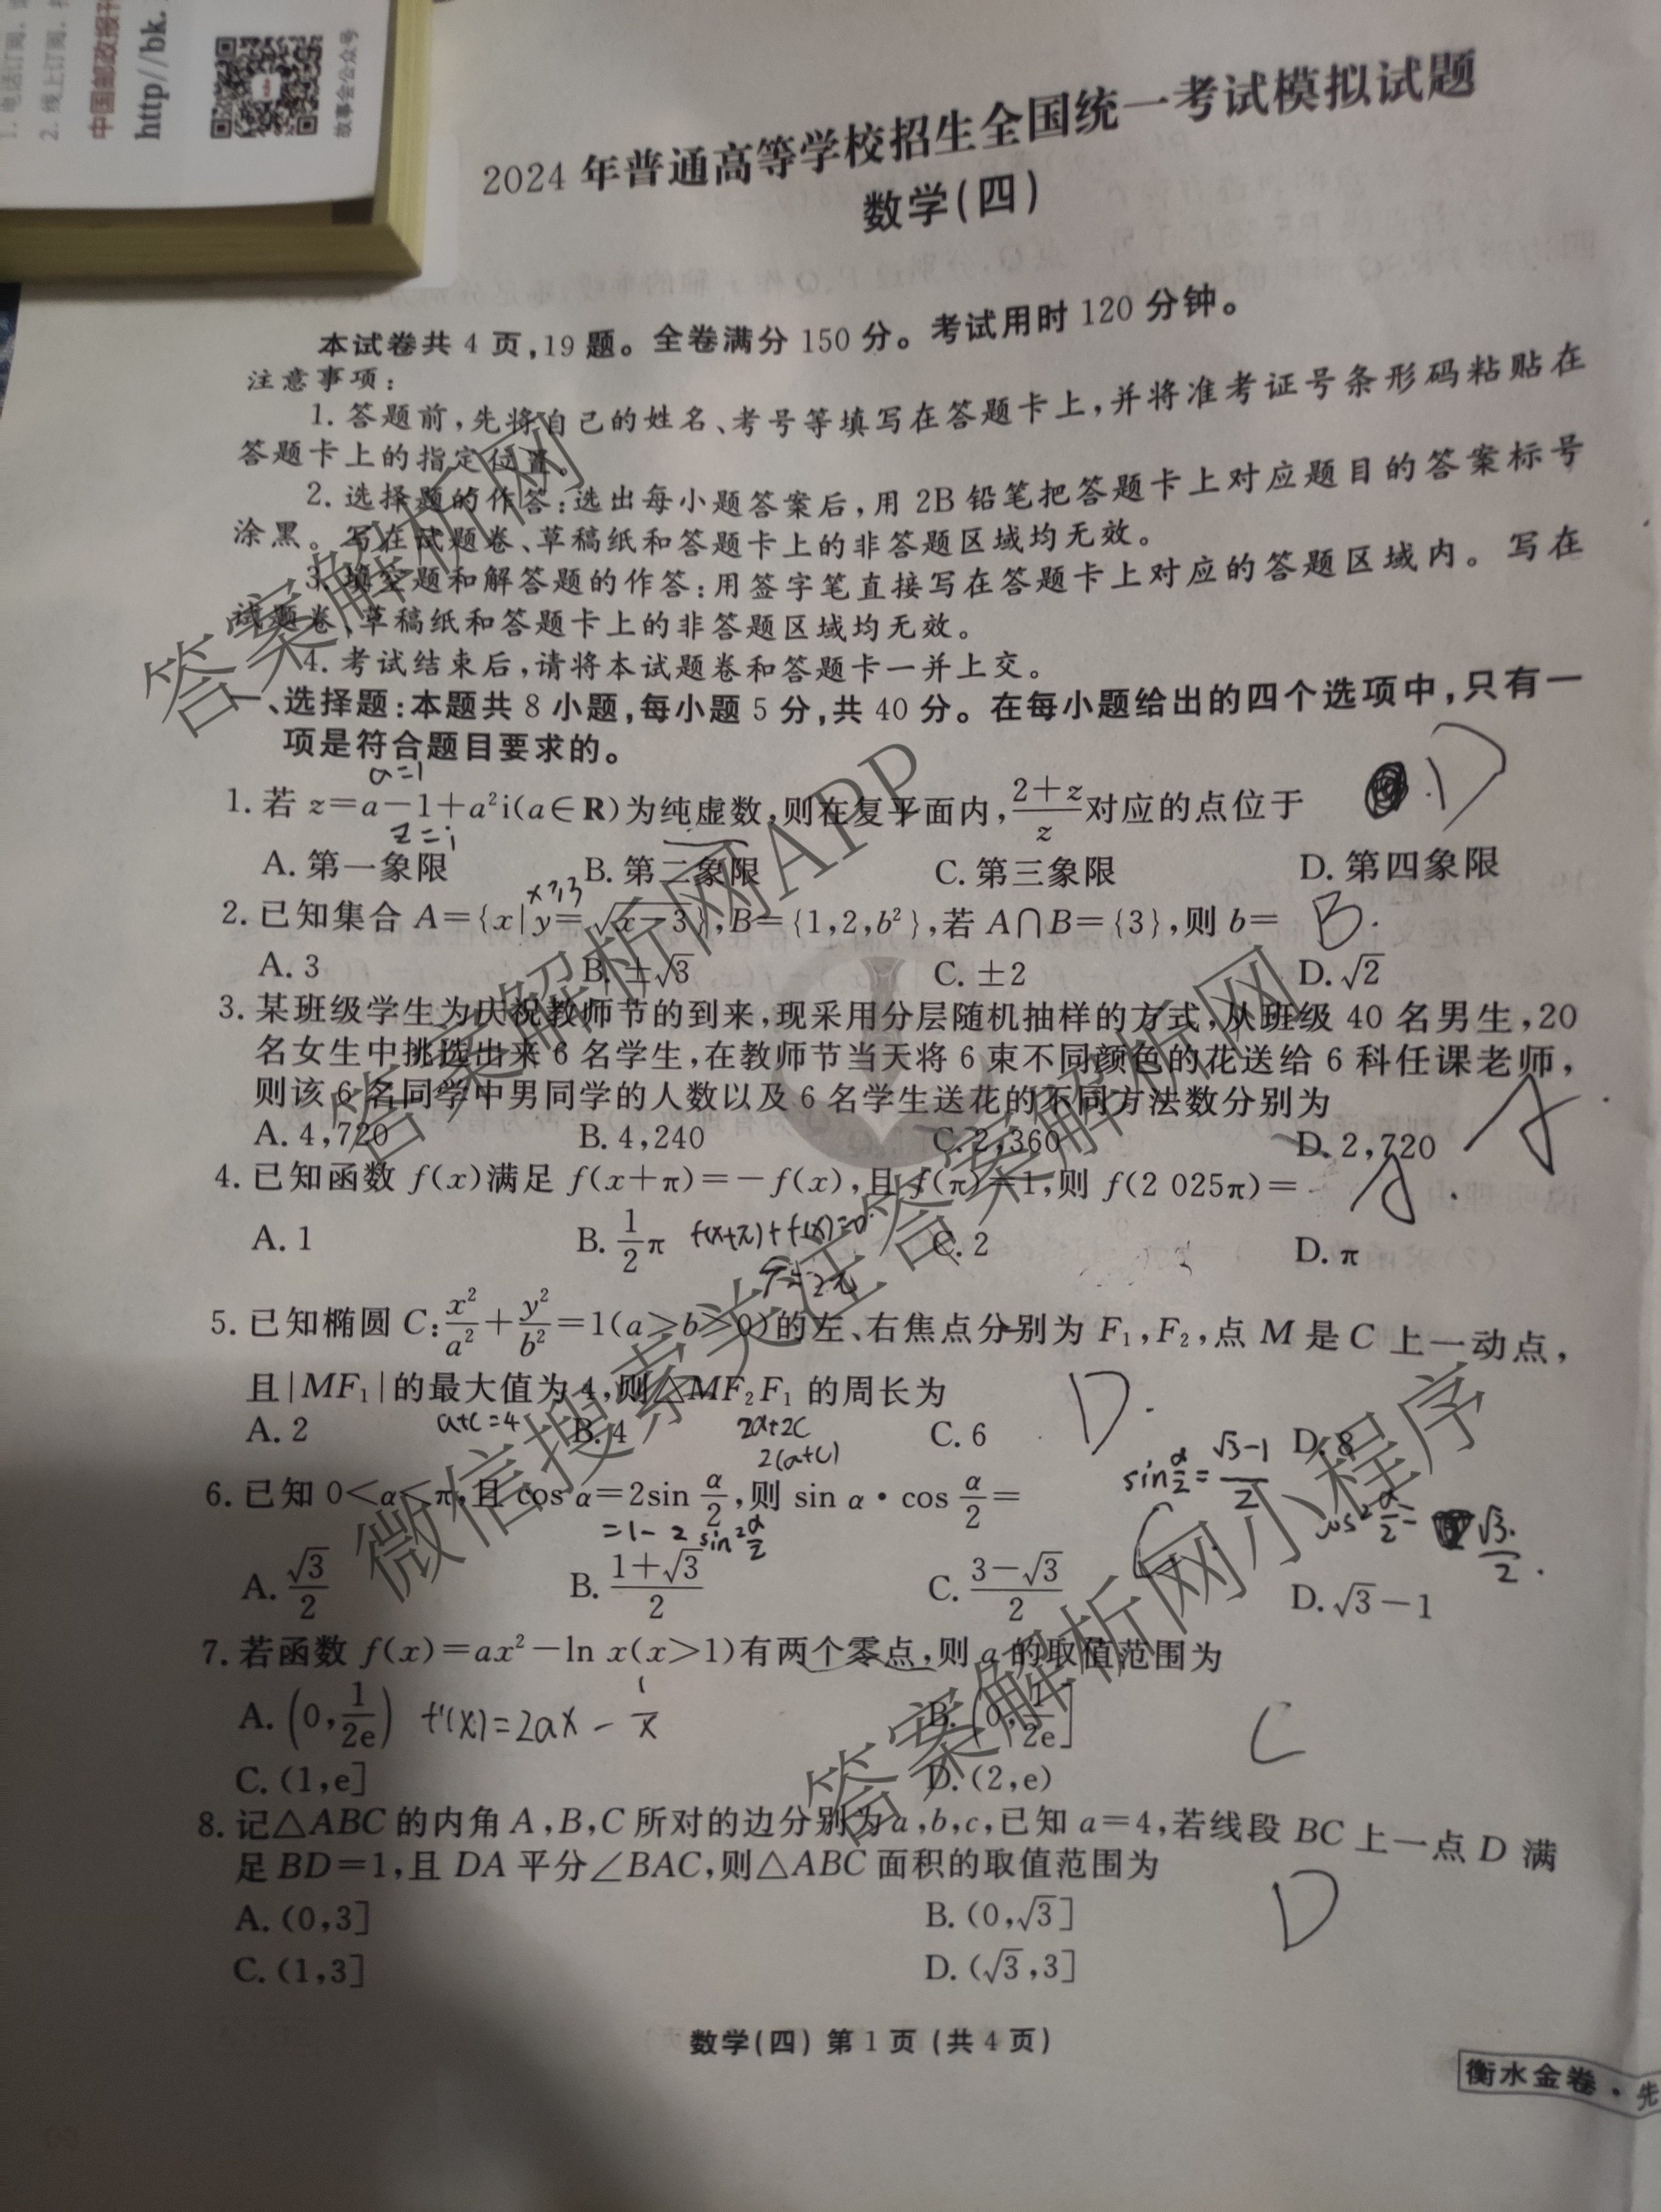 1. 电话订阅,
2. 线上订阅,
中国邮政报刊
http//bk.
故事会公众号
2024年普通高等学校招生全国统一考试模拟试题
数学(四)
本试卷共4页,19题。全卷满分150分。考试用时120分钟。
注意事项:
1. 答题前,先将自己的姓名、考号等填写在答题卡上,并将准考证号条形码粘贴在
答题卡上的指定位置。
2. 选择题的作答:选出每小题答案后,用2B铅笔把答题卡上对应题目的答案标号
涂黑。写在试题卷、草稿纸和答题卡上的非答题区域均无效。
3. 填空题和解答题的作答:用签字笔直接写在答题卡上对应的答题区域内。写在
试题卷、草稿纸和答题卡上的非答题区域均无效。
4. 考试结束后,请将本试题卷和答题卡一并上交。
一、选择题:本题共8小题,每小题5分,共40分。在每小题给出的四个选项中,只有一
项是符合题目要求的。
a=1
1. 若 z=a-1+a²i(a∈R)为纯虚数,则在复平面内,(2+z)/z 对应的点位于 D
z=i
A. 第一象限 B. 第二象限 C. 第三象限 D. 第四象限
x≥3
2. 已知集合 A={x|y=√(x-3)},B={1,2,b²},若 A∩B={3},则 b= B.
A. 3 B. ±√3 C. ±2 D. √2
3. 某班级学生为庆祝教师节的到来,现采用分层随机抽样的方式,从班级40名男生,20
名女生中挑选出来6名学生,在教师节当天将6束不同颜色的花送给6科任课老师,
则该6名同学中男同学的人数以及6名学生送花的不同方法数分别为 A.
A. 4,720 B. 4,240 C. 2,360 D. 2,720
4. 已知函数 f(x)满足 f(x+π)=-f(x),且 f(π)=1,则 f(2 025π)= A.
A. 1 B. 1/2 π C. 2 D. π
f(x+π)+f(x)=0
T=2π
5. 已知椭圆 C:x²/a²+y²/b²=1(a>b>0)的左、右焦点分别为 F₁,F₂,点 M 是 C 上一动点,
且|MF₁|的最大值为4,则△MF₂F₁ 的周长为 D.
A. 2 B. 4 C. 6 D. 8
a+c=4
2a+2c
2(a+c)
6. 已知 0<α<π,且 cos α=2sin α/2,则 sin α·cos α/2= C
=1-2sin²α/2
sin α/2=(√3-1)/2
cos²α/2=√3/2.
A. √3/2 B. (1+√3)/2 C. (3-√3)/2 D. √3-1
7. 若函数 f(x)=ax²-ln x(x>1)有两个零点,则 a 的取值范围为 C
A. (0,1/2e) B. (0,1/2e]
f'(x)=2ax-1/x
C. (1,e] D. (2,e)
8. 记△ABC 的内角 A,B,C 所对的边分别为 a,b,c,已知 a=4,若线段 BC 上一点 D 满
足 BD=1,且 DA 平分∠BAC,则△ABC 面积的取值范围为 D
A. (0,3] B. (0,√3]
C. (1,3] D. (√3,3]
数学(四) 第1页 (共4页)
衡水金卷·先
答案解析网
答案解析网APP
微信搜索关注答案解析网
答案解析网小程序